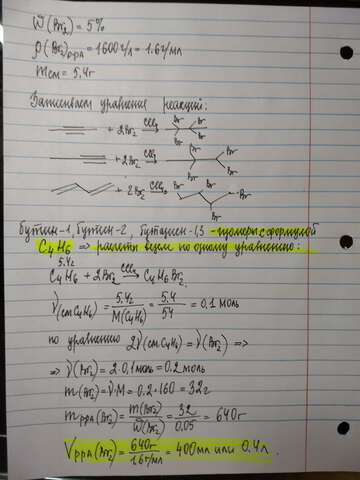 W(Br₂) = 5%
ρ(Br₂)р-ра = 1600 г/л = 1.6 г/мл
mсм = 5.4г
Записываем уравнения реакций:
+ 2Br₂ CCl₄→ Br Br Br Br
+ 2Br₂ CCl₄→ Br Br Br Br
+ 2Br₂ CCl₄→ Br Br Br Br
бутин-1, бутин-2, бутадиен-1,3 - изомеры с формулой
C₄H₆ => расчеты ведем по одному уравнению:
5.4г
C₄H₆ + 2Br₂ CCl₄→ C₄H₆Br₂.
ν(смC₄H₆) = 5.4г / M(C₄H₆) = 5.4 / 54 = 0.1 моль
по уравнению 2ν(смC₄H₆) = ν(Br₂) =>
=> ν(Br₂) = 2·0.1моль = 0.2 моль
m(Br₂) = ν·M = 0.2·160 = 32г
mр-ра(Br₂) = m(Br₂) / W(Br₂) = 32 / 0.05 = 640г
Vр-ра(Br₂) = 640г / 1.6г/мл = 400мл или 0.4л.